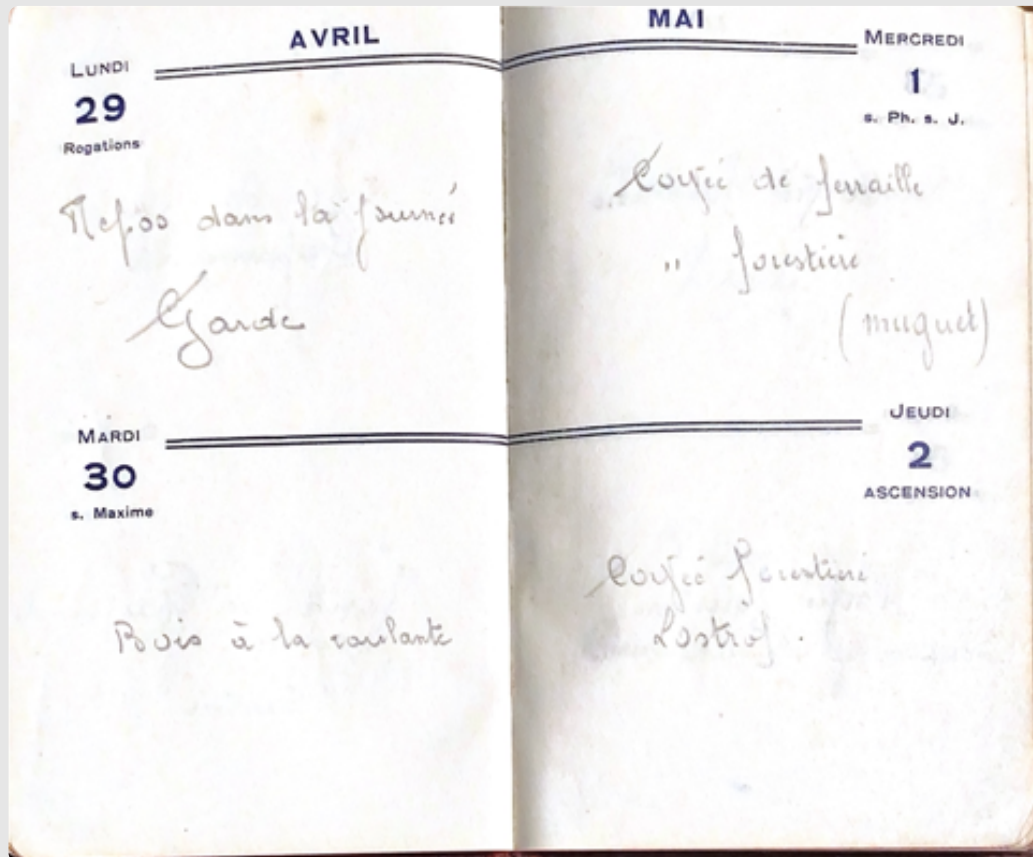 AVRIL
LUNDI
29
Rogations
Repos dans la journée
Garde
MARDI
30
s. Maxime
Bois à la roulante
MAI
MERCREDI
1
s. Ph. s. J.
Corvée de ferraille
" forestière
(muguet)
JEUDI
2
ASCENSION
Corvée forestière